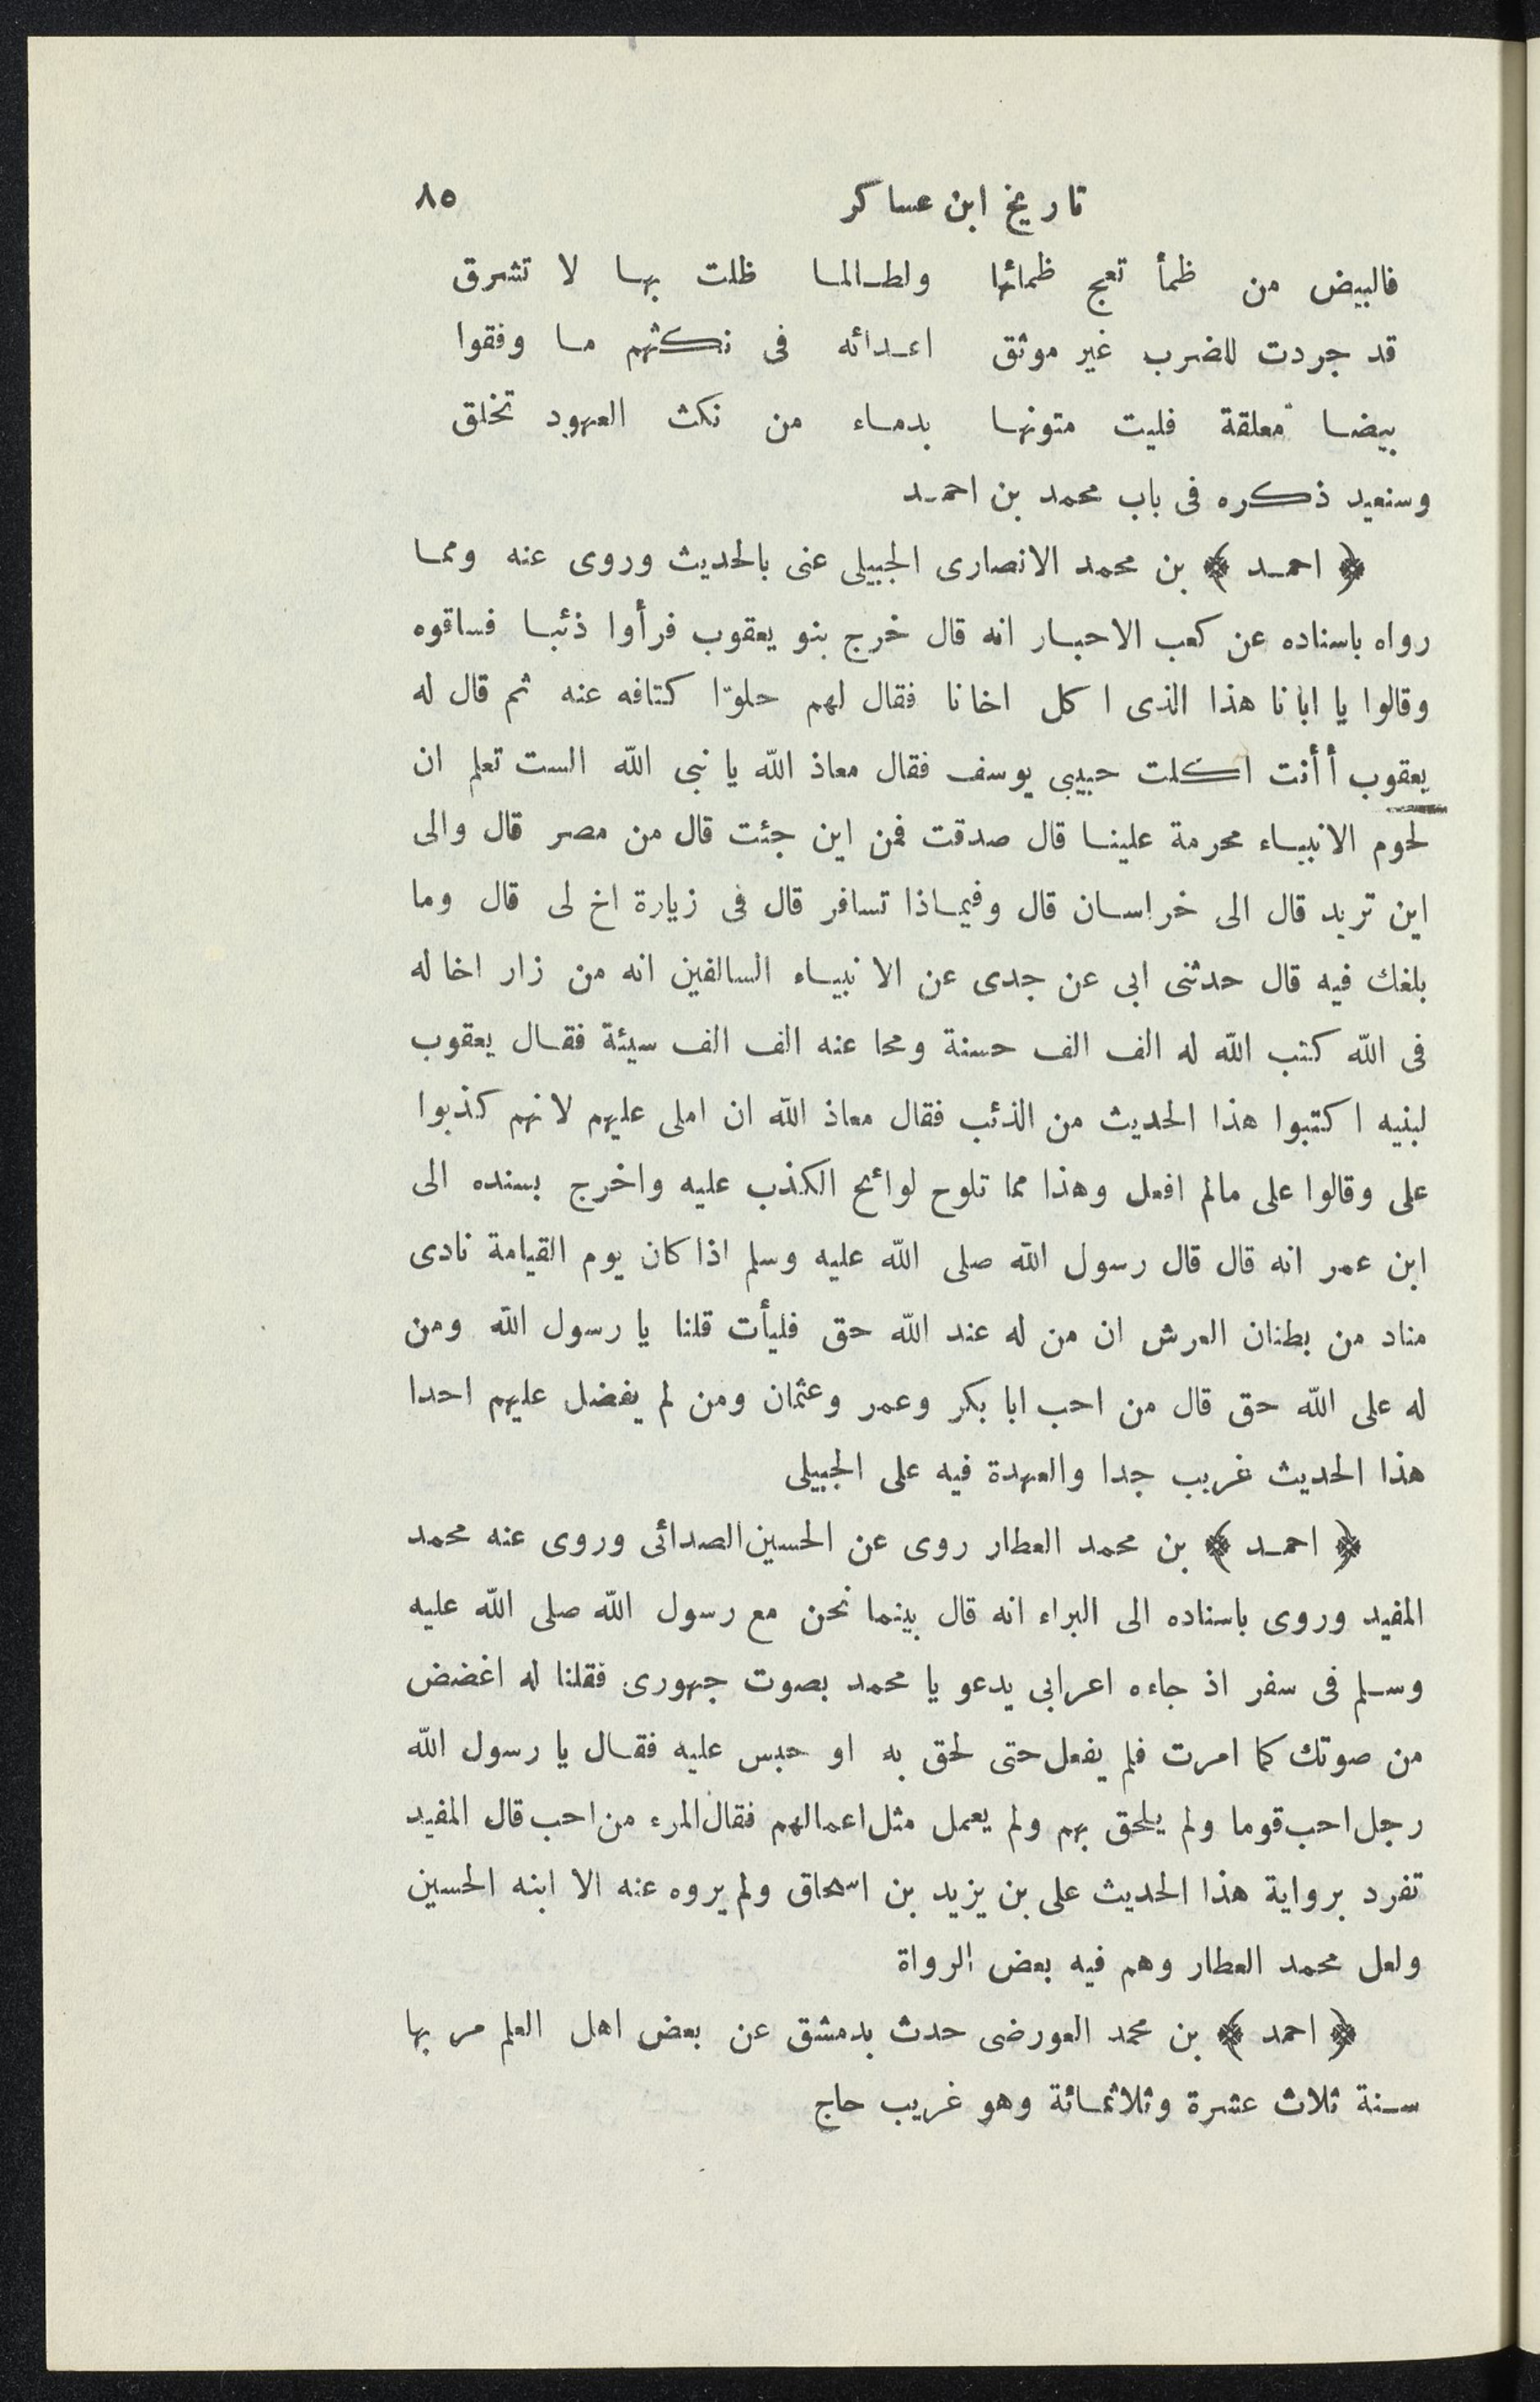 تاريخ ابن عساكر ٨٥
فالبيض من ظمأ تعج ظمائها ولطالما ظلت بها لا تشرق
قد جردت للضرب غير موثق اعدائه فى نكثهم ما وفقوا
بيضا معلقة فليت متونها بدماء من نكث العهود تخلق
وسنعيد ذكره فى باب محمد بن احمد
﴿ احمد ﴾ بن محمد الانصارى الجبيلى عنى بالحديث وروى عنه ومما
رواه باسناده عن كعب الاحبار انه قال خرج بنو يعقوب فرأوا ذئبا فساقوه
وقالوا يا ابانا هذا الذى اكل اخانا فقال لهم حلوّا كتافه عنه ثم قال له
يعقوب أأنت اكلت حبيبى يوسف فقال معاذ الله يا نبى الله الست تعلم ان
لحوم الانبياء محرمة علينا قال صدقت فمن اين جئت قال من مصر قال والى
اين تريد قال الى خراسان قال وفيماذا تسافر قال فى زيارة اخ لى قال وما
بلغك فيه قال حدثنى ابى عن جدى عن الانبياء السالفين انه من زار اخا له
فى الله كتب الله له الف الف حسنة ومحا عنه الف الف سيئة فقال يعقوب
لبنيه اكتبوا هذا الحديث من الذئب فقال معاذ الله ان املى عليهم لانهم كذبوا
على وقالوا على مالم افعل وهذا مما تلوح لوائح الكذب عليه واخرج بسنده الى
ابن عمر انه قال قال رسول الله صلى الله عليه وسلم اذا كان يوم القيامة نادى
مناد من بطنان العرش ان من له عند الله حق فليأت قلنا يا رسول الله ومن
له على الله حق قال من احب ابا بكر وعمر وعثمان ومن لم يفضل عليهم احدا
هذا الحديث غريب جدا والعهدة فيه على الجبيلى
﴿ احمد ﴾ بن محمد العطار روى عن الحسين الصدائى وروى عنه محمد
المفيد وروى باسناده الى البراء انه قال بينما نحن مع رسول الله صلى الله عليه
وسلم فى سفر اذ جاءه اعرابى يدعو يا محمد بصوت جهورى فقلنا له اغضض
من صوتك كما امرت فلم يفعل حتى لحق به او حبس عليه فقال يا رسول الله
رجل احب قوما ولم يلحق بهم ولم يعمل مثل اعمالهم فقال المرء من احب قال المفيد
تفرد برواية هذا الحديث على بن يزيد بن اسحاق ولم يروه عنه الا ابنه الحسين
ولعل محمد العطار وهم فيه بعض الرواة
﴿ احمد ﴾ بن محمد العورضى حدث بدمشق عن بعض اهل العلم مر بها
سنة ثلاث عشرة وثلاثمائة وهو غريب حاج